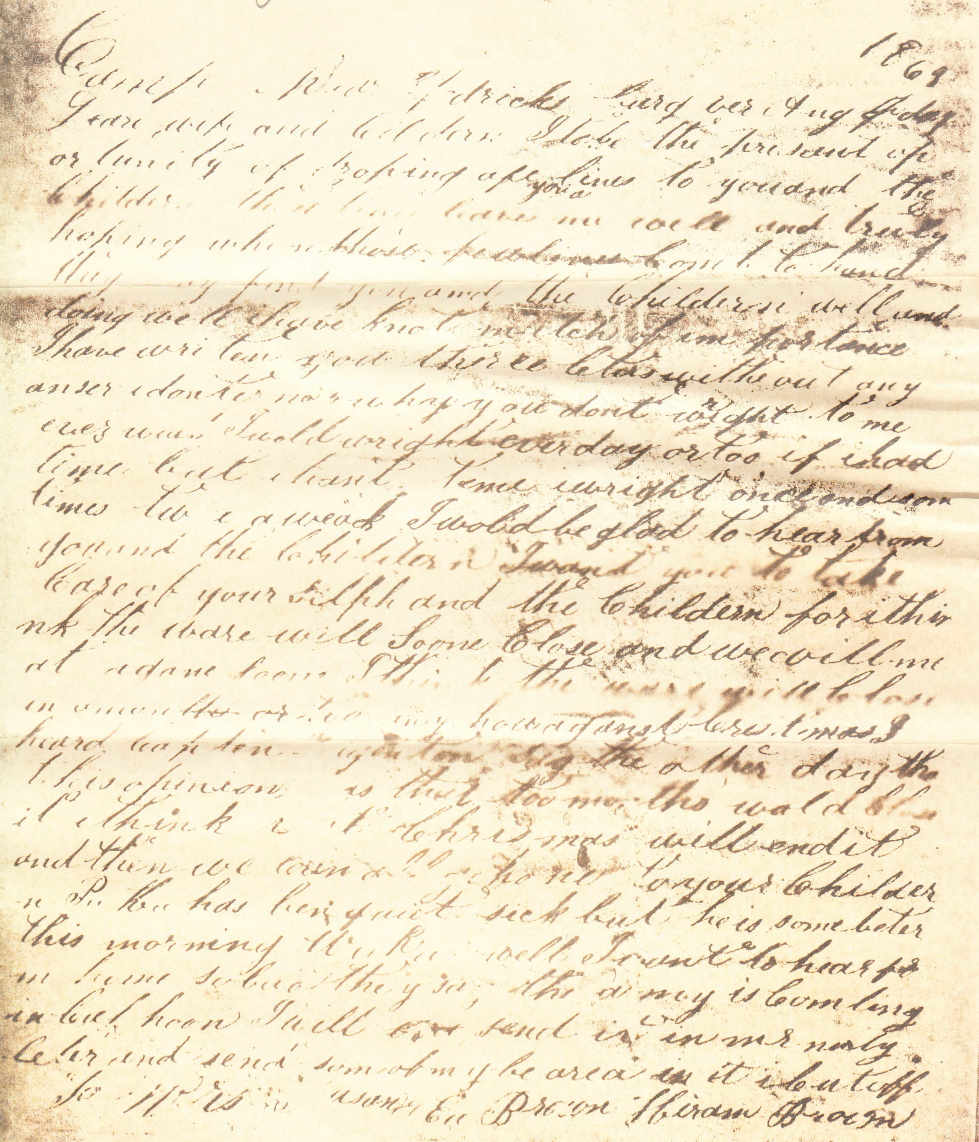 1863
Camp Near Fredricks burg ver Aug
Deare wife and Childern I take the present op
or tunity of droping a few lines to you and the
Childern these lines leave me well and truly
hoping when those few lines Comes to hand
they may find you and the Childern well and
doing well I have knot mutch of im portance
I have writen you three leters without any
anser i dont no why you dont wright to me
I wold wright ever day or too if i had
time but i haint time i wright once and som
times twice a weack I wold be glad to hear from
you and the Childern I want you to take
Care of your silph and the Childern for i thin
nk the ware will Soone Close and we will me
at a dane soone I think the ware will Close
in a month or too any how aganst Cris timas I
heard Capten say the other day tha
t his opinon is that too months wold Close
it i think i t Christmas will end it
and then we can all go home to your Childer
n has ben quit sick but he is some beter
this morning well I want to hear fr
m home so bad they say the army is Comling
in back hoon I will send it in mr
leter and send som of my beard in it i cut off
So Brown Hiram Brown